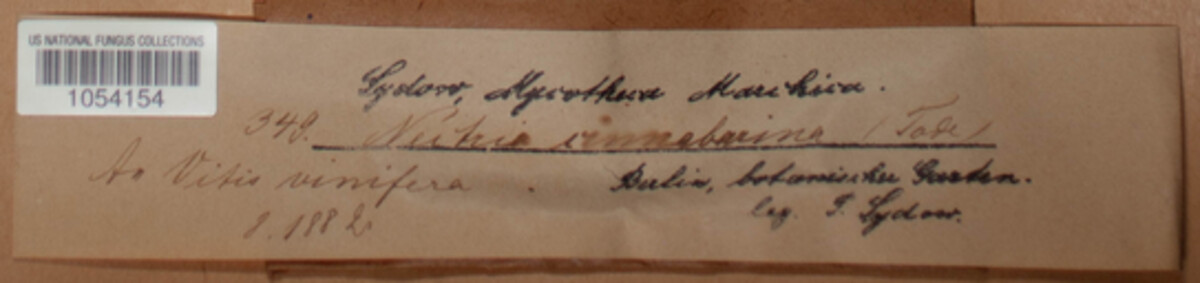 US NATIONAL FUNGUS COLLECTIONS
1054154
Sydow, Mycotheca Marchica.
349. Nectria cinnabarina (Tode)
An Vitis vinifera. Berlin, botanischer Garten.
8. 1882. leg. P. Sydow.